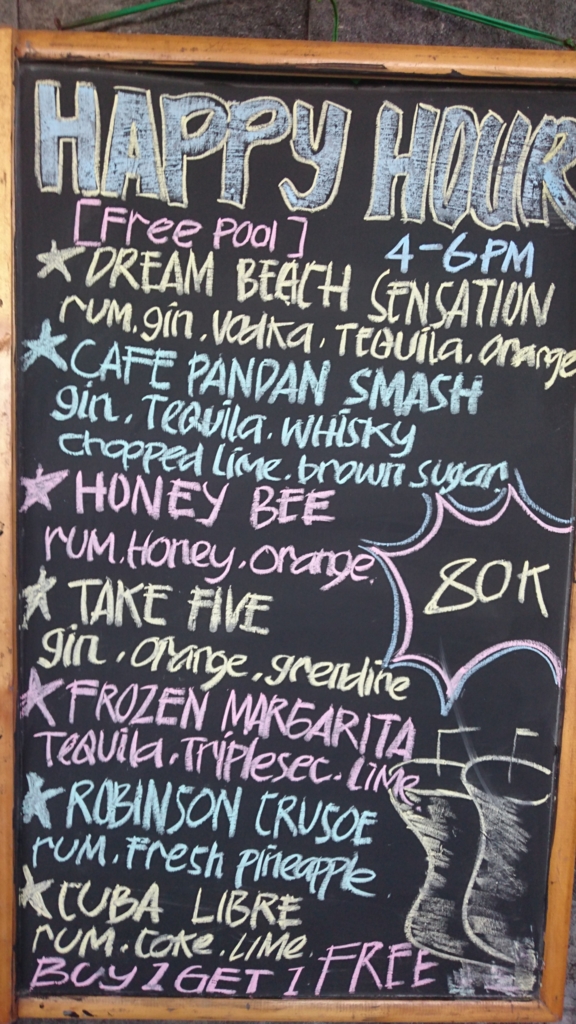 HAPPY HOUR
[Free Pool]
4-6PM
DREAM BEACH SENSATION
rum.gin.vodka.Tequila.orange
CAFE PANDAN SMASH
gin.Tequila.WHISKY
chopped Lime.brown sugar
HONEY BEE
rum.Honey.orange.
80K
TAKE FIVE
gin.orange.grendine
FROZEN MARGARITA
Tequila.Triplesec.Lime
ROBINSON CRUSOE
rum.Fresh Pineapple
CUBA LIBRE
rum.Coke.Lime.
BUY 1 GET 1 FREE